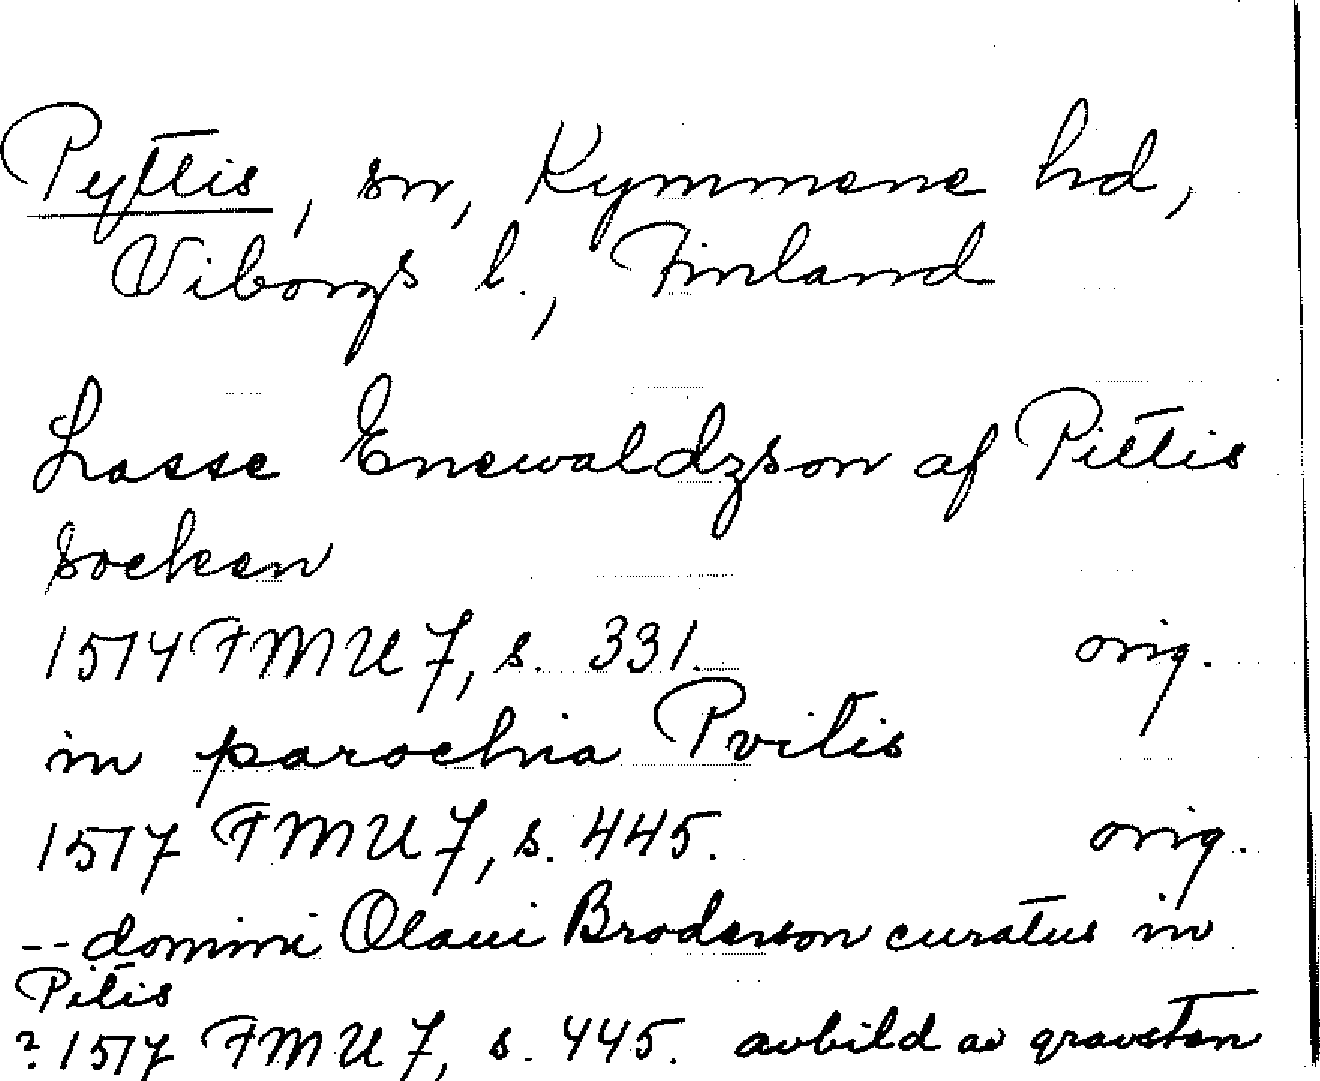 Pyttis, sn, Kymmene hd,
Viborgs l., Finland
Lasse Enewaldzson af Pittis
socken
1514 FMU 7, s. 331. orig.
in parochia Pvitis
1517 FMU 7, s. 445. orig.
-- domini Olaui Broderson curatus in
Pitis
? 1517 FMU 7, s. 445. avbild av gravsten